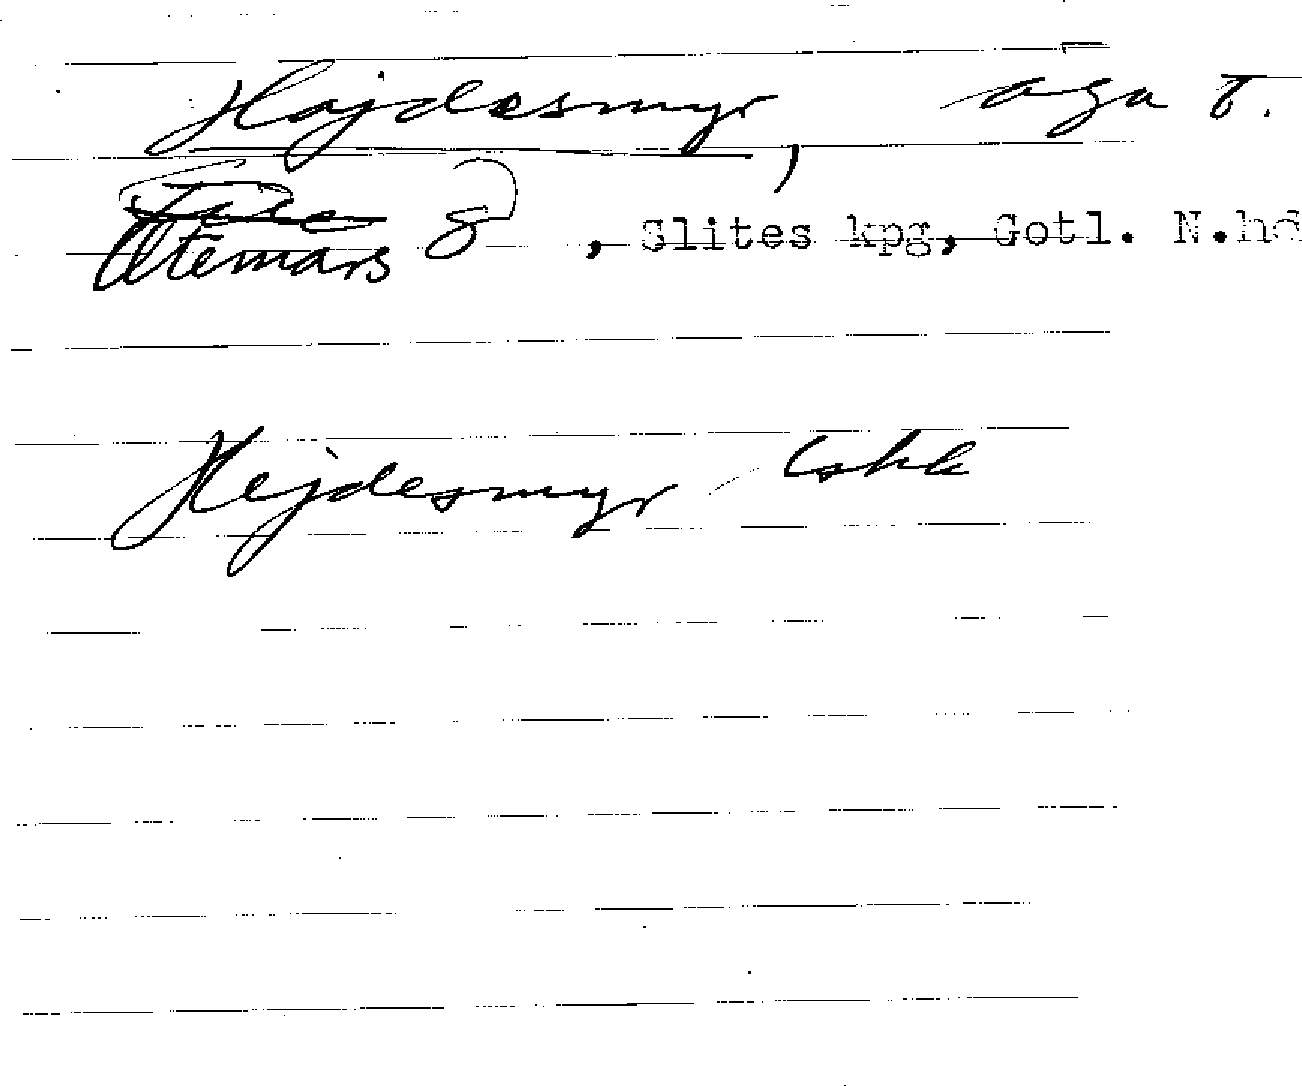 Hajdesmyr, äga t.
Otemars s , Slites kpg, Gotl. N.hd
Hejdesmyr